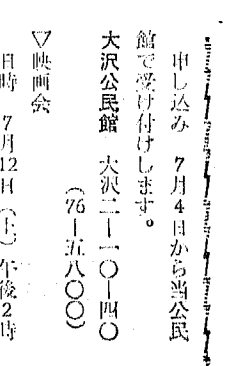 申し込み 7月4日から当公民
館で受け付けします。
大沢公民館 大沢二ー一〇ー四〇
(76ー五八〇〇)
▽映画会
日時 7月12日(土)午後2時